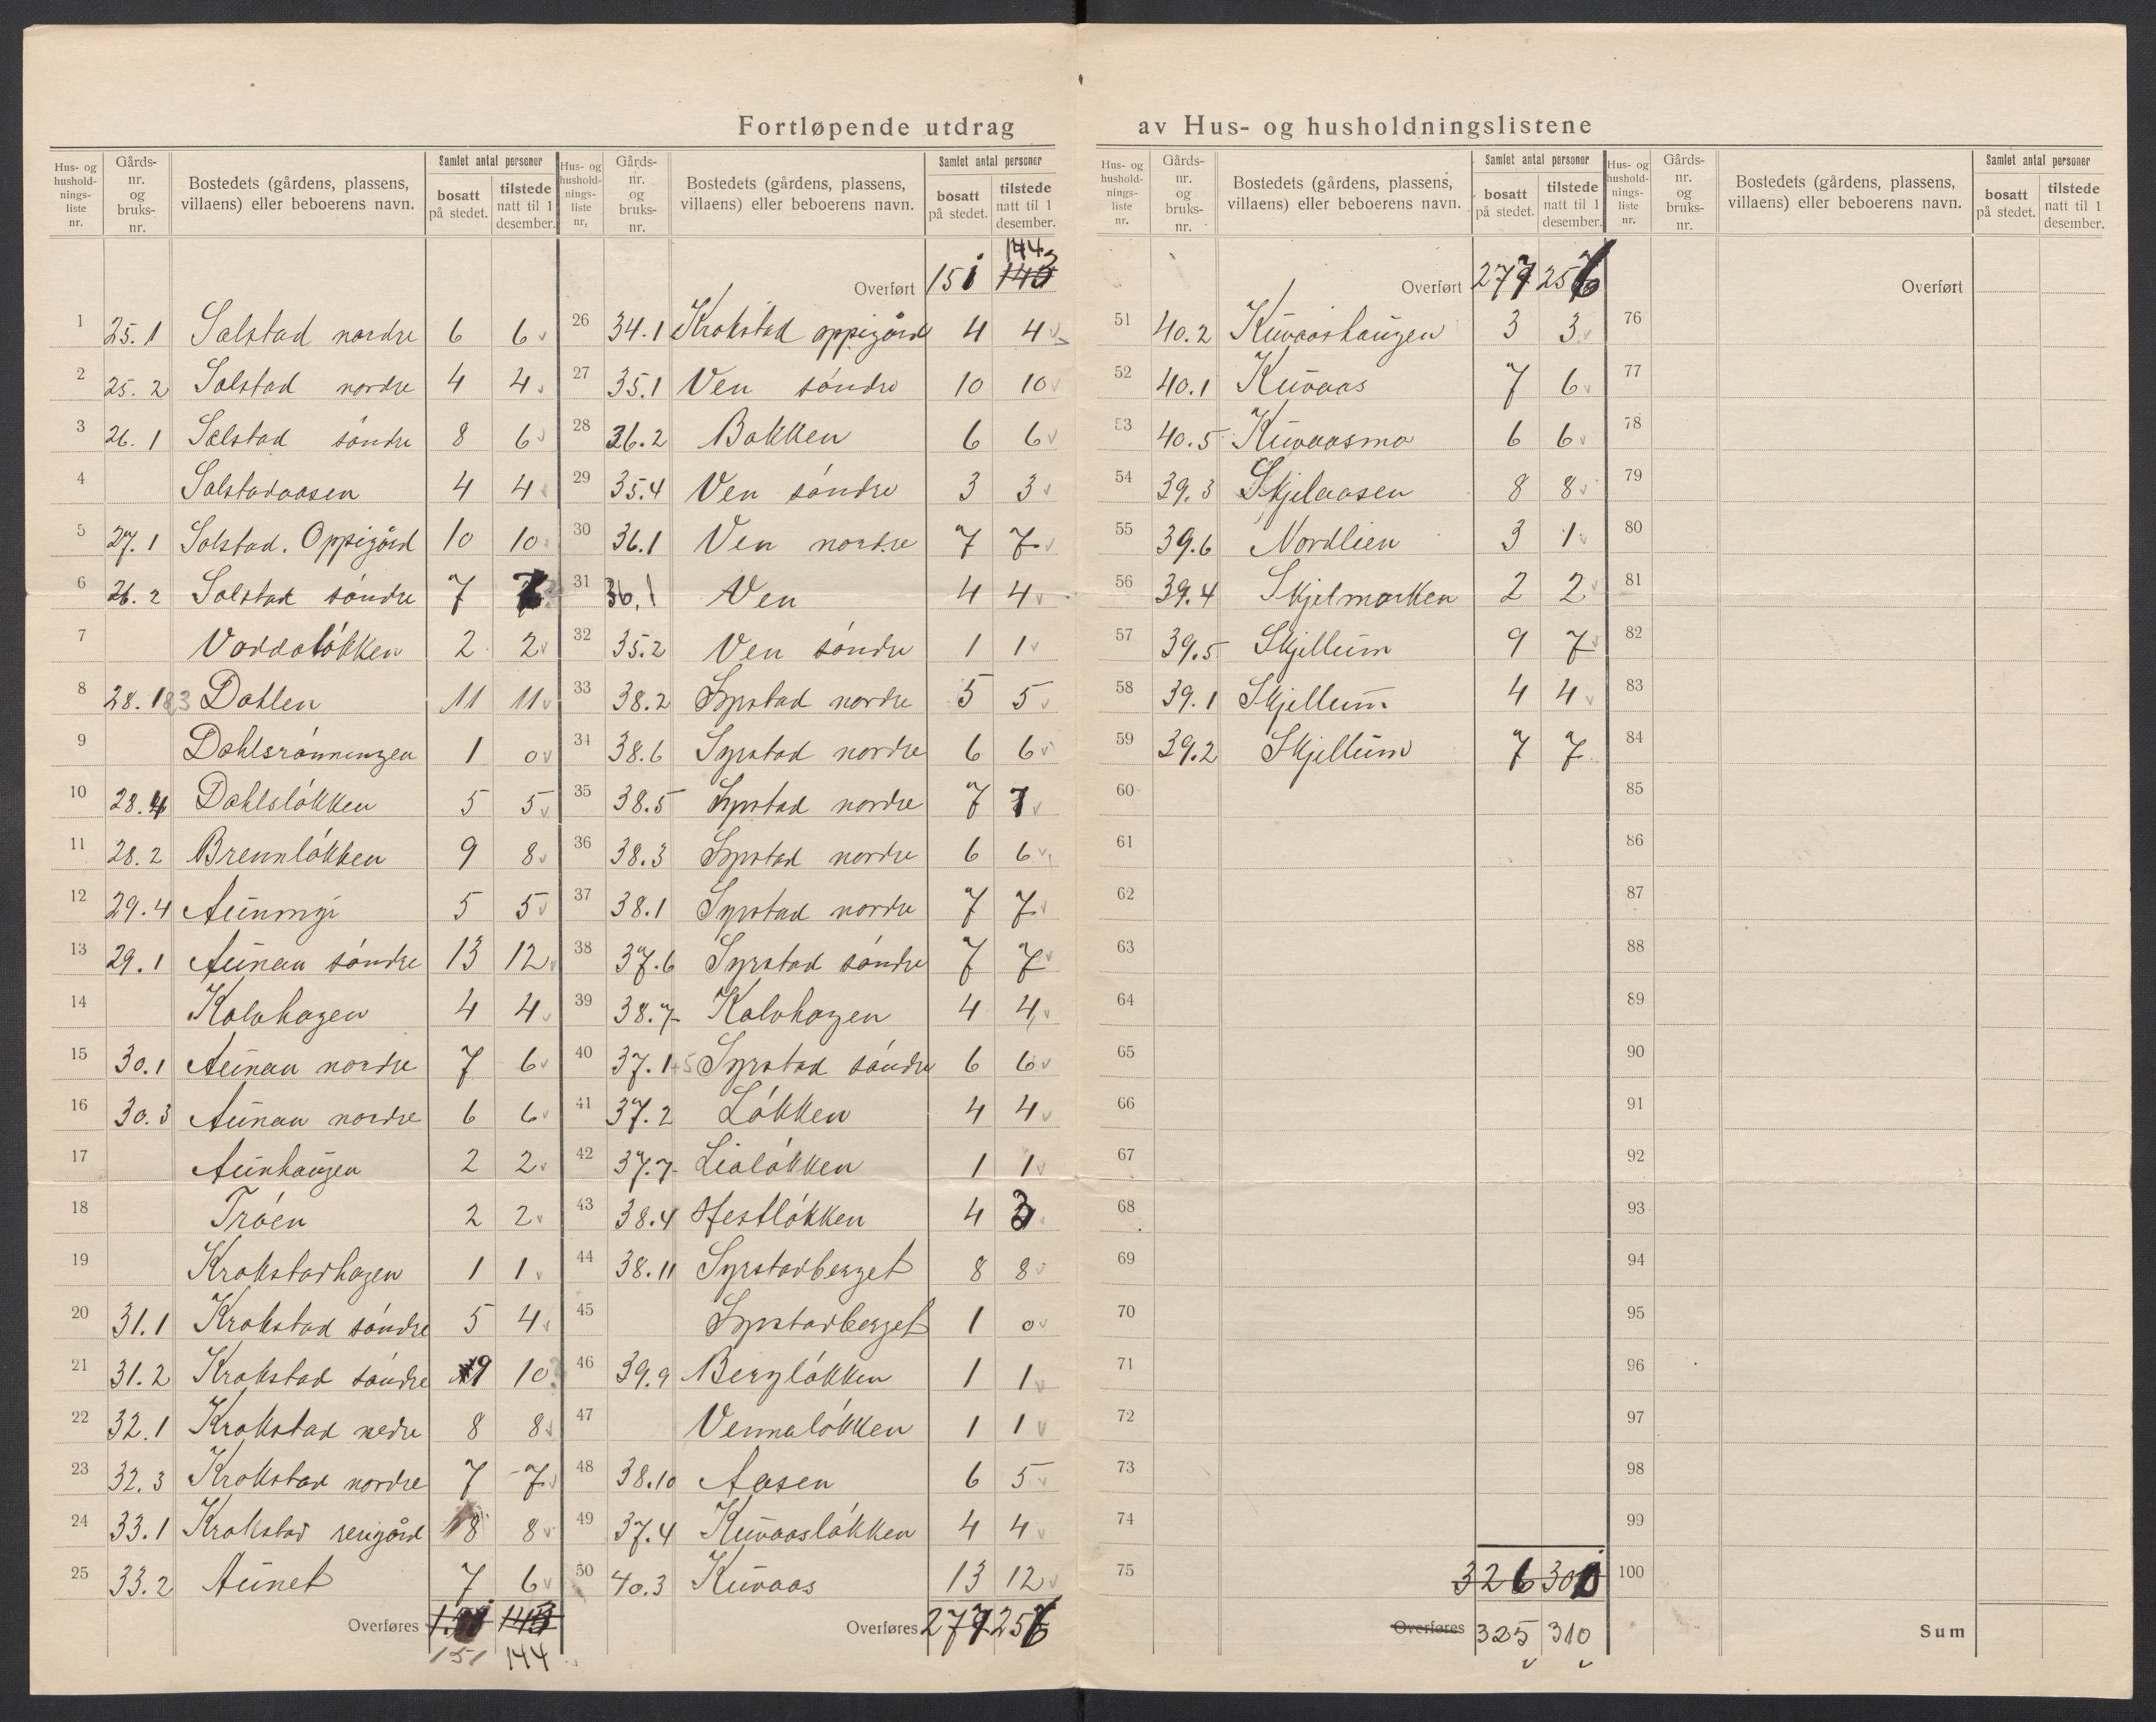 Fortløpende utdrag av Hus- og husholdningslistene
Hus- og hushold-nings-liste nr. | Gårds-nr. og bruks-nr. | Bostedets (gårdens, plassens, villaens) eller beboerens navn. | Samlet antal personer | bosatt på stedet. | tilstede natt til 1 desember.
1 25.1 Solstad nordre 6 6
2 25.2 Solstad nordre 4 4
3 26.1 Solstad søndre 8 6
4 Solstadaasen 4 4
5 27.1 Solstad. Oppigård 10 10
6 26.2 Solstad søndre 7
7 Voddaløkken 2 2
8 28.1 Dahlen 11 11
9 Dahlsrønningen 1 0
10 28.4 Dahlsløkken 5 5
11 28.2 Brennløkken 9 8
12 29.4 Aunmyr 5 5
13 29.1 Aunan søndre 13 12
14 Kalvhagen 4 4
15 30.1 Aunan nordre 7 6
16 30.3 Aunan nordre 6 6
17 Aunhaugen 2 2
18 Trøen 2 2
19 Krokstadhagen 1 1
20 31.1 Krokstad søndre 5 4
21 31.2 Krokstad søndre 9 10
22 32.1 Krokstad nedre 8 8
23 32.3 Krokstad nordre 7 7
24 33.1 Krokstad 8 8
25 33.2 Aunet 7 6
Overføres
151 144
Hus- og hushold-nings-liste nr. | Gårds-nr. og bruks-nr. | Bostedets (gårdens, plassens, villaens) eller beboerens navn. | Samlet antal personer | bosatt på stedet. | tilstede natt til 1 desember.
144
Overført 151
26 34.1 Krokstad oppigård 4 4
27 35.1 Ven søndre 10 10
28 36.2 Bakken 6 6
29 35.4 Ven søndre 3 3
30 36.1 Ven nordre 7 7
31 36.1 Ven 4 4
32 35.2 Ven søndre 1 1
33 38.2 Syrstad nordre 5 5
34 38.6 Syrstad nordre 6 6
35 38.5 Syrstad nordre 7 7
36 38.3 Syrstad nordre 6 6
37 38.1 Syrstad nordre 7 7
38 37.6 Syrstad søndre 7 7
39 38.7 Kalvhagen 4 4
40 37.1+5 Syrstad søndre 6 6
41 37.2 Løkken 4 4
42 37.7 Lialøkken 1 1
43 38.4 Hestløkken 4 3
44 38.11 Syrstadberget 8 8
45 Syrstadberget 1 0
46 39.9 Bergløkken 1 1
47 Vennaløkken 1 1
48 38.10 Aasen 6 5
49 37.4 Kuvaasløkken 4 4
50 40.3 Kuvaas 13 12
Overføres 277 256
Hus- og hushold-nings-liste nr. | Gårds-nr. og bruks-nr. | Bostedets (gårdens, plassens, villaens) eller beboerens navn. | Samlet antal personer | bosatt på stedet. | tilstede natt til 1 desember.
Overført 277 256
51 40.2 Kuvaashaugen 3 3
52 40.1 Kuvaas 7 6
53 40.5 Kuvaasmo 6 6
54 39.3 Skjelaasen 8 8
55 39.6 Nordlien 3 1
56 39.4 Skjelmarken 2 2
57 39.5 Skjellum 9 7
58 39.1 Skjellum 4 4
59 39.2 Skjellum 7 7
60
61
62
63
64
65
66
67
68
69
70
71
72
73
74
75 326 300
Overføres 325 310
Hus- og hushold-nings-liste nr. | Gårds-nr. og bruks-nr. | Bostedets (gårdens, plassens, villaens) eller beboerens navn. | Samlet antal personer | bosatt på stedet. | tilstede natt til 1 desember.
Overført
76
77
78
79
80
81
82
83
84
85
86
87
88
89
90
91
92
93
94
95
96
97
98
99
100
Sum